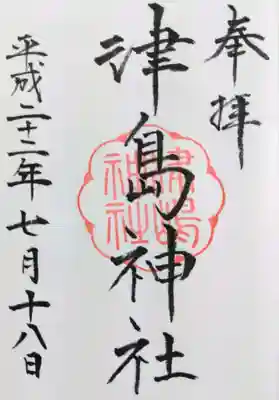 奉拝
津島神社
津嶋神社
平成二十二年七月十八日